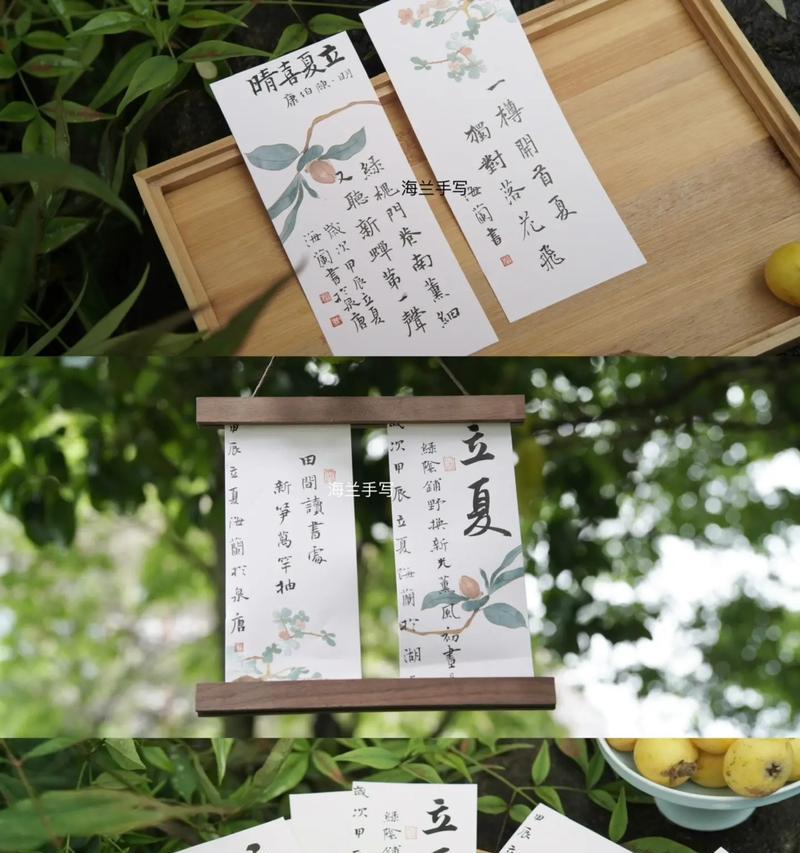 立夏喜晴
明·陳伯康
綠槐門巷南薰細
又聽新蟬第一聲
歲次甲辰立夏
海蘭書於泉唐
一樽開首夏
獨對落花飛
海蘭書
海兰手写
立夏
綠陰鋪野換新光
薰風初晝
歲次甲辰立夏海蘭於湖
田間讀書處
新笋萬竿抽
甲辰立夏海蘭於泉唐
海兰手写
立
夏
綠陰鋪
歲次甲
甲辰立